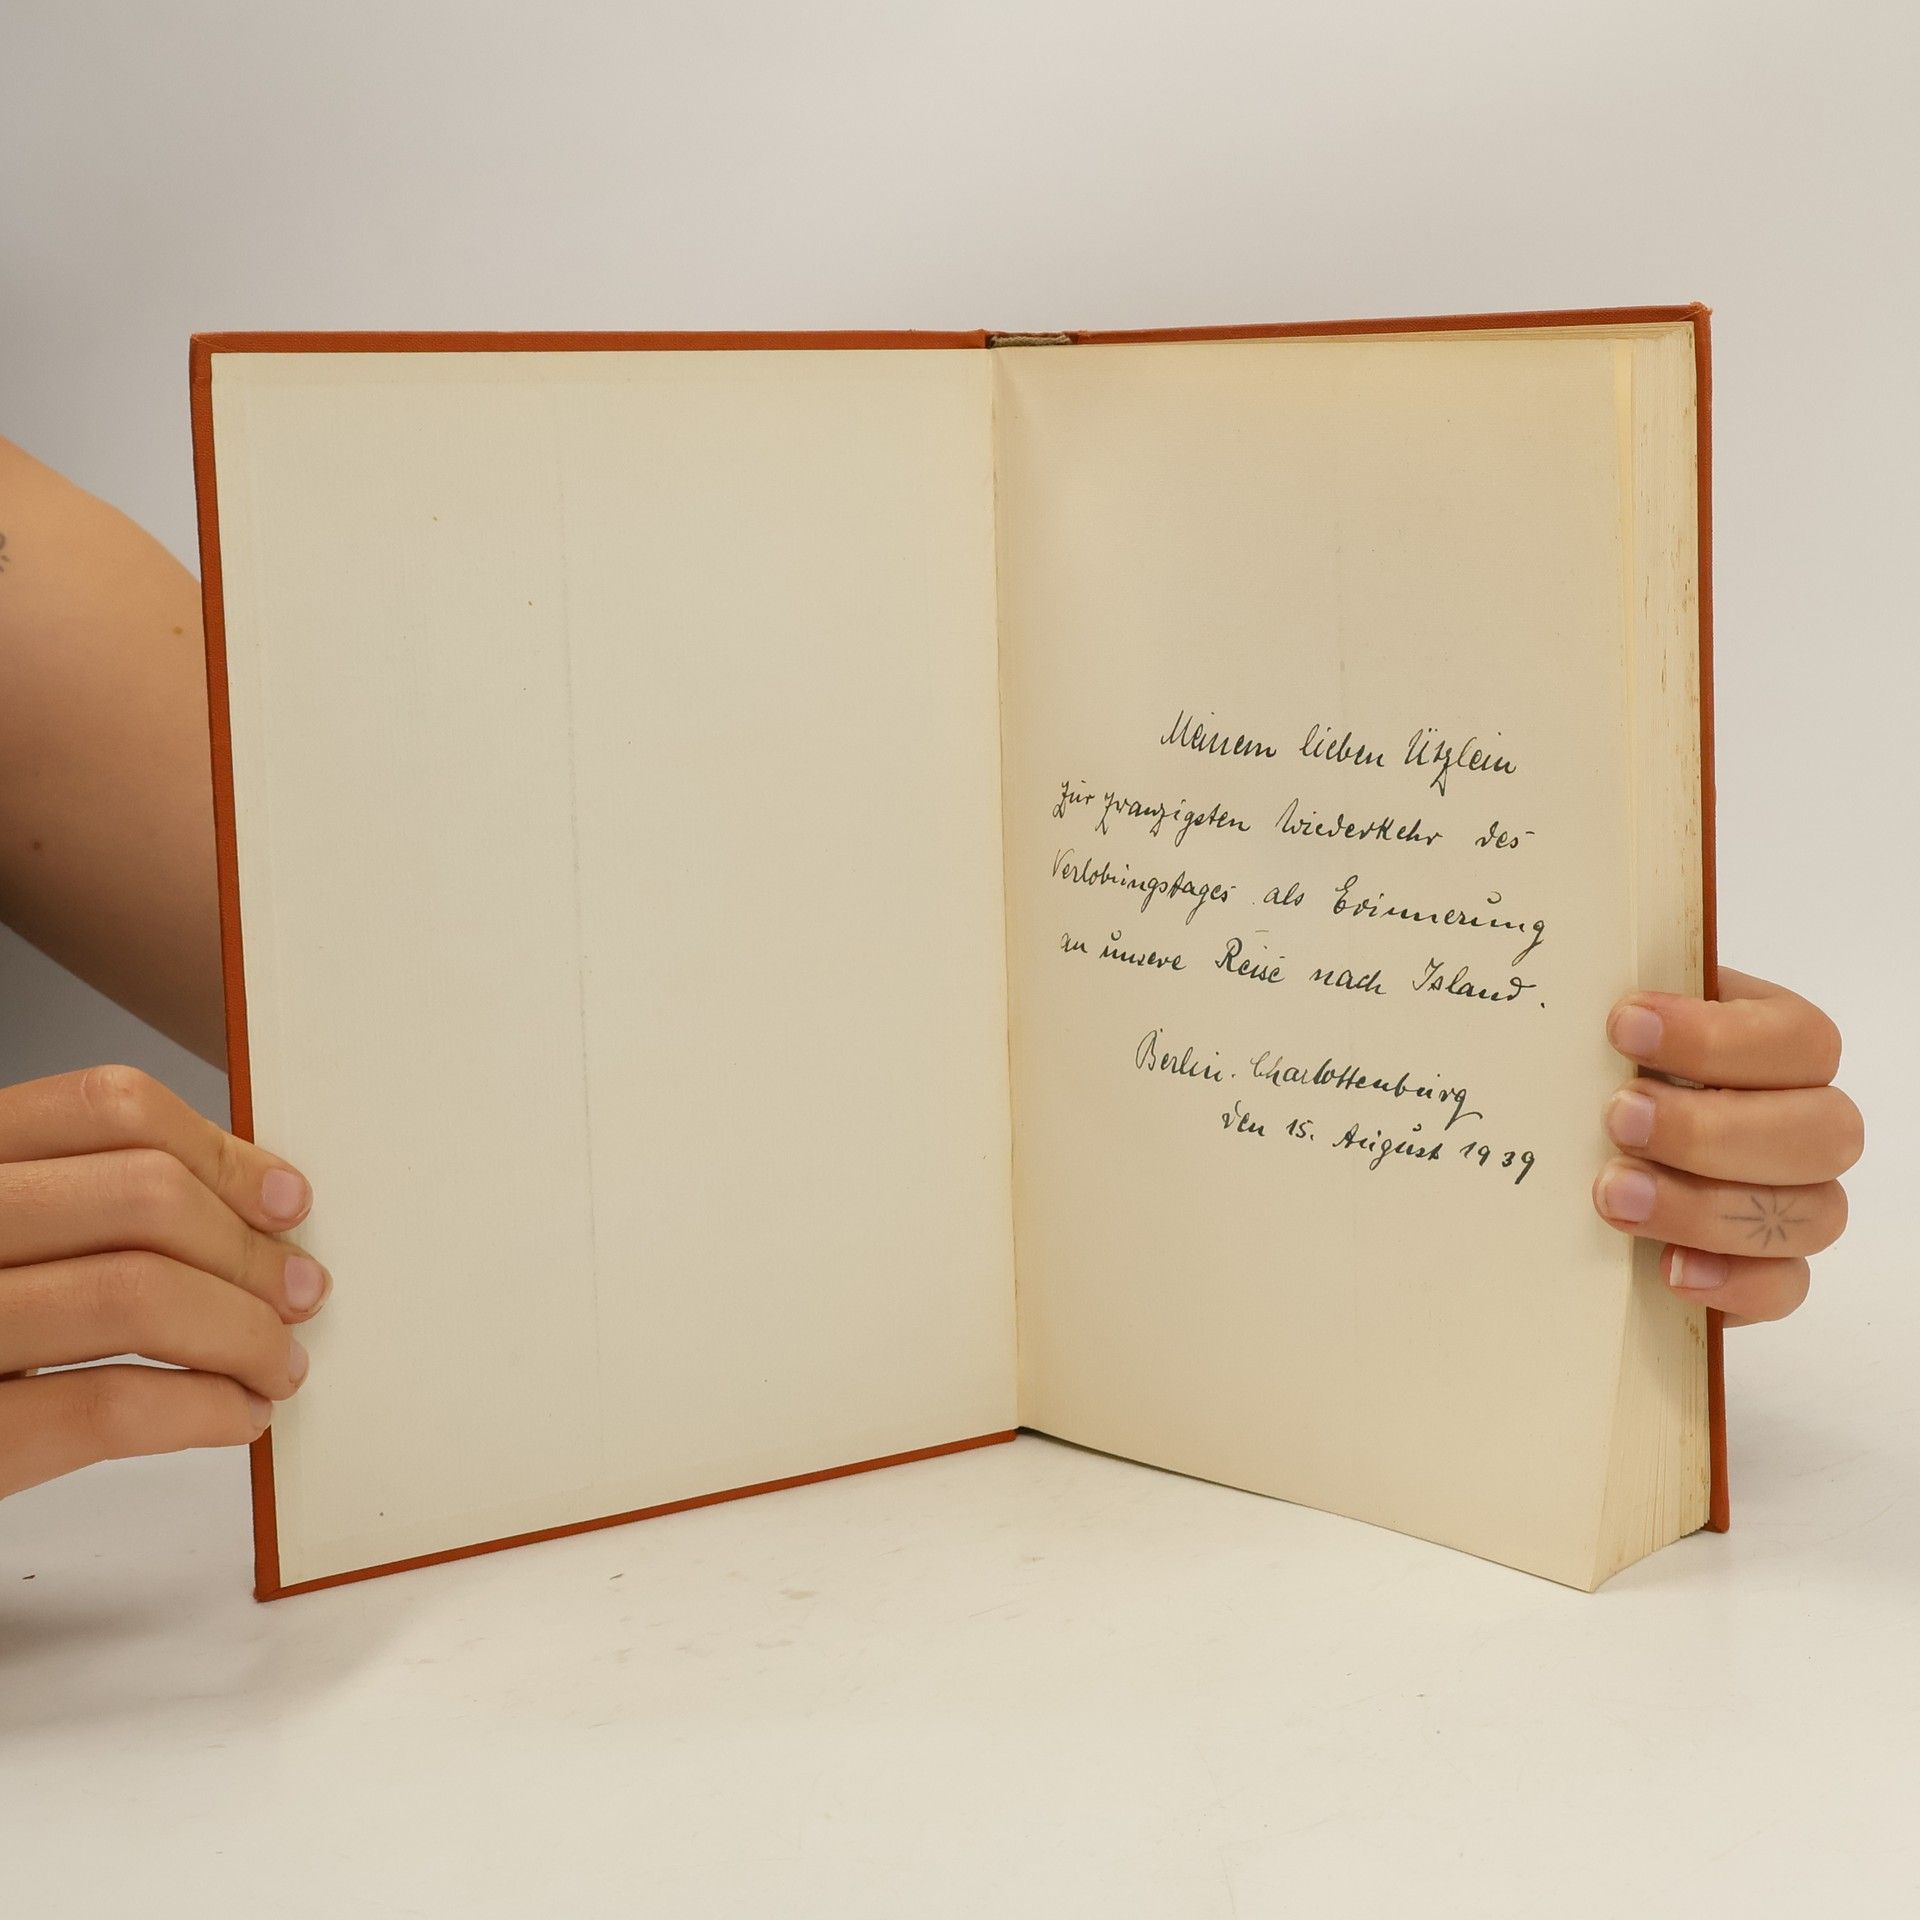 Meinem lieben Ützlein
zur zwanzigsten Wiederkehr des
Verlobungstages als Erinnerung
an unsere Reise nach Island.
Berlin-Charlottenburg
den 15. August 1939